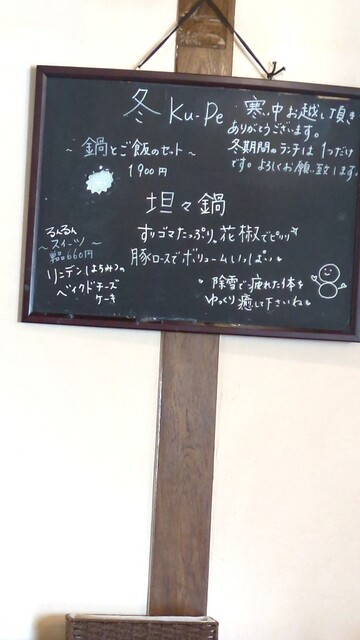 冬 Ku-Pe
寒い中お越し頂き
ありがとうございます。
冬期間のランチは1つだけ
です。よろしくお願い致します。
～鍋とご飯のセット～
1900円
坦々鍋
すりゴマたっぷり。花椒でピリリ
豚ロースでボリュームいっぱい
るんるん
～スイーツ～
単品660円
リーデン(はちみつ)の
ベイクドチーズ
ケーキ
除雪で疲れた体を
ゆっくり癒して下さいね